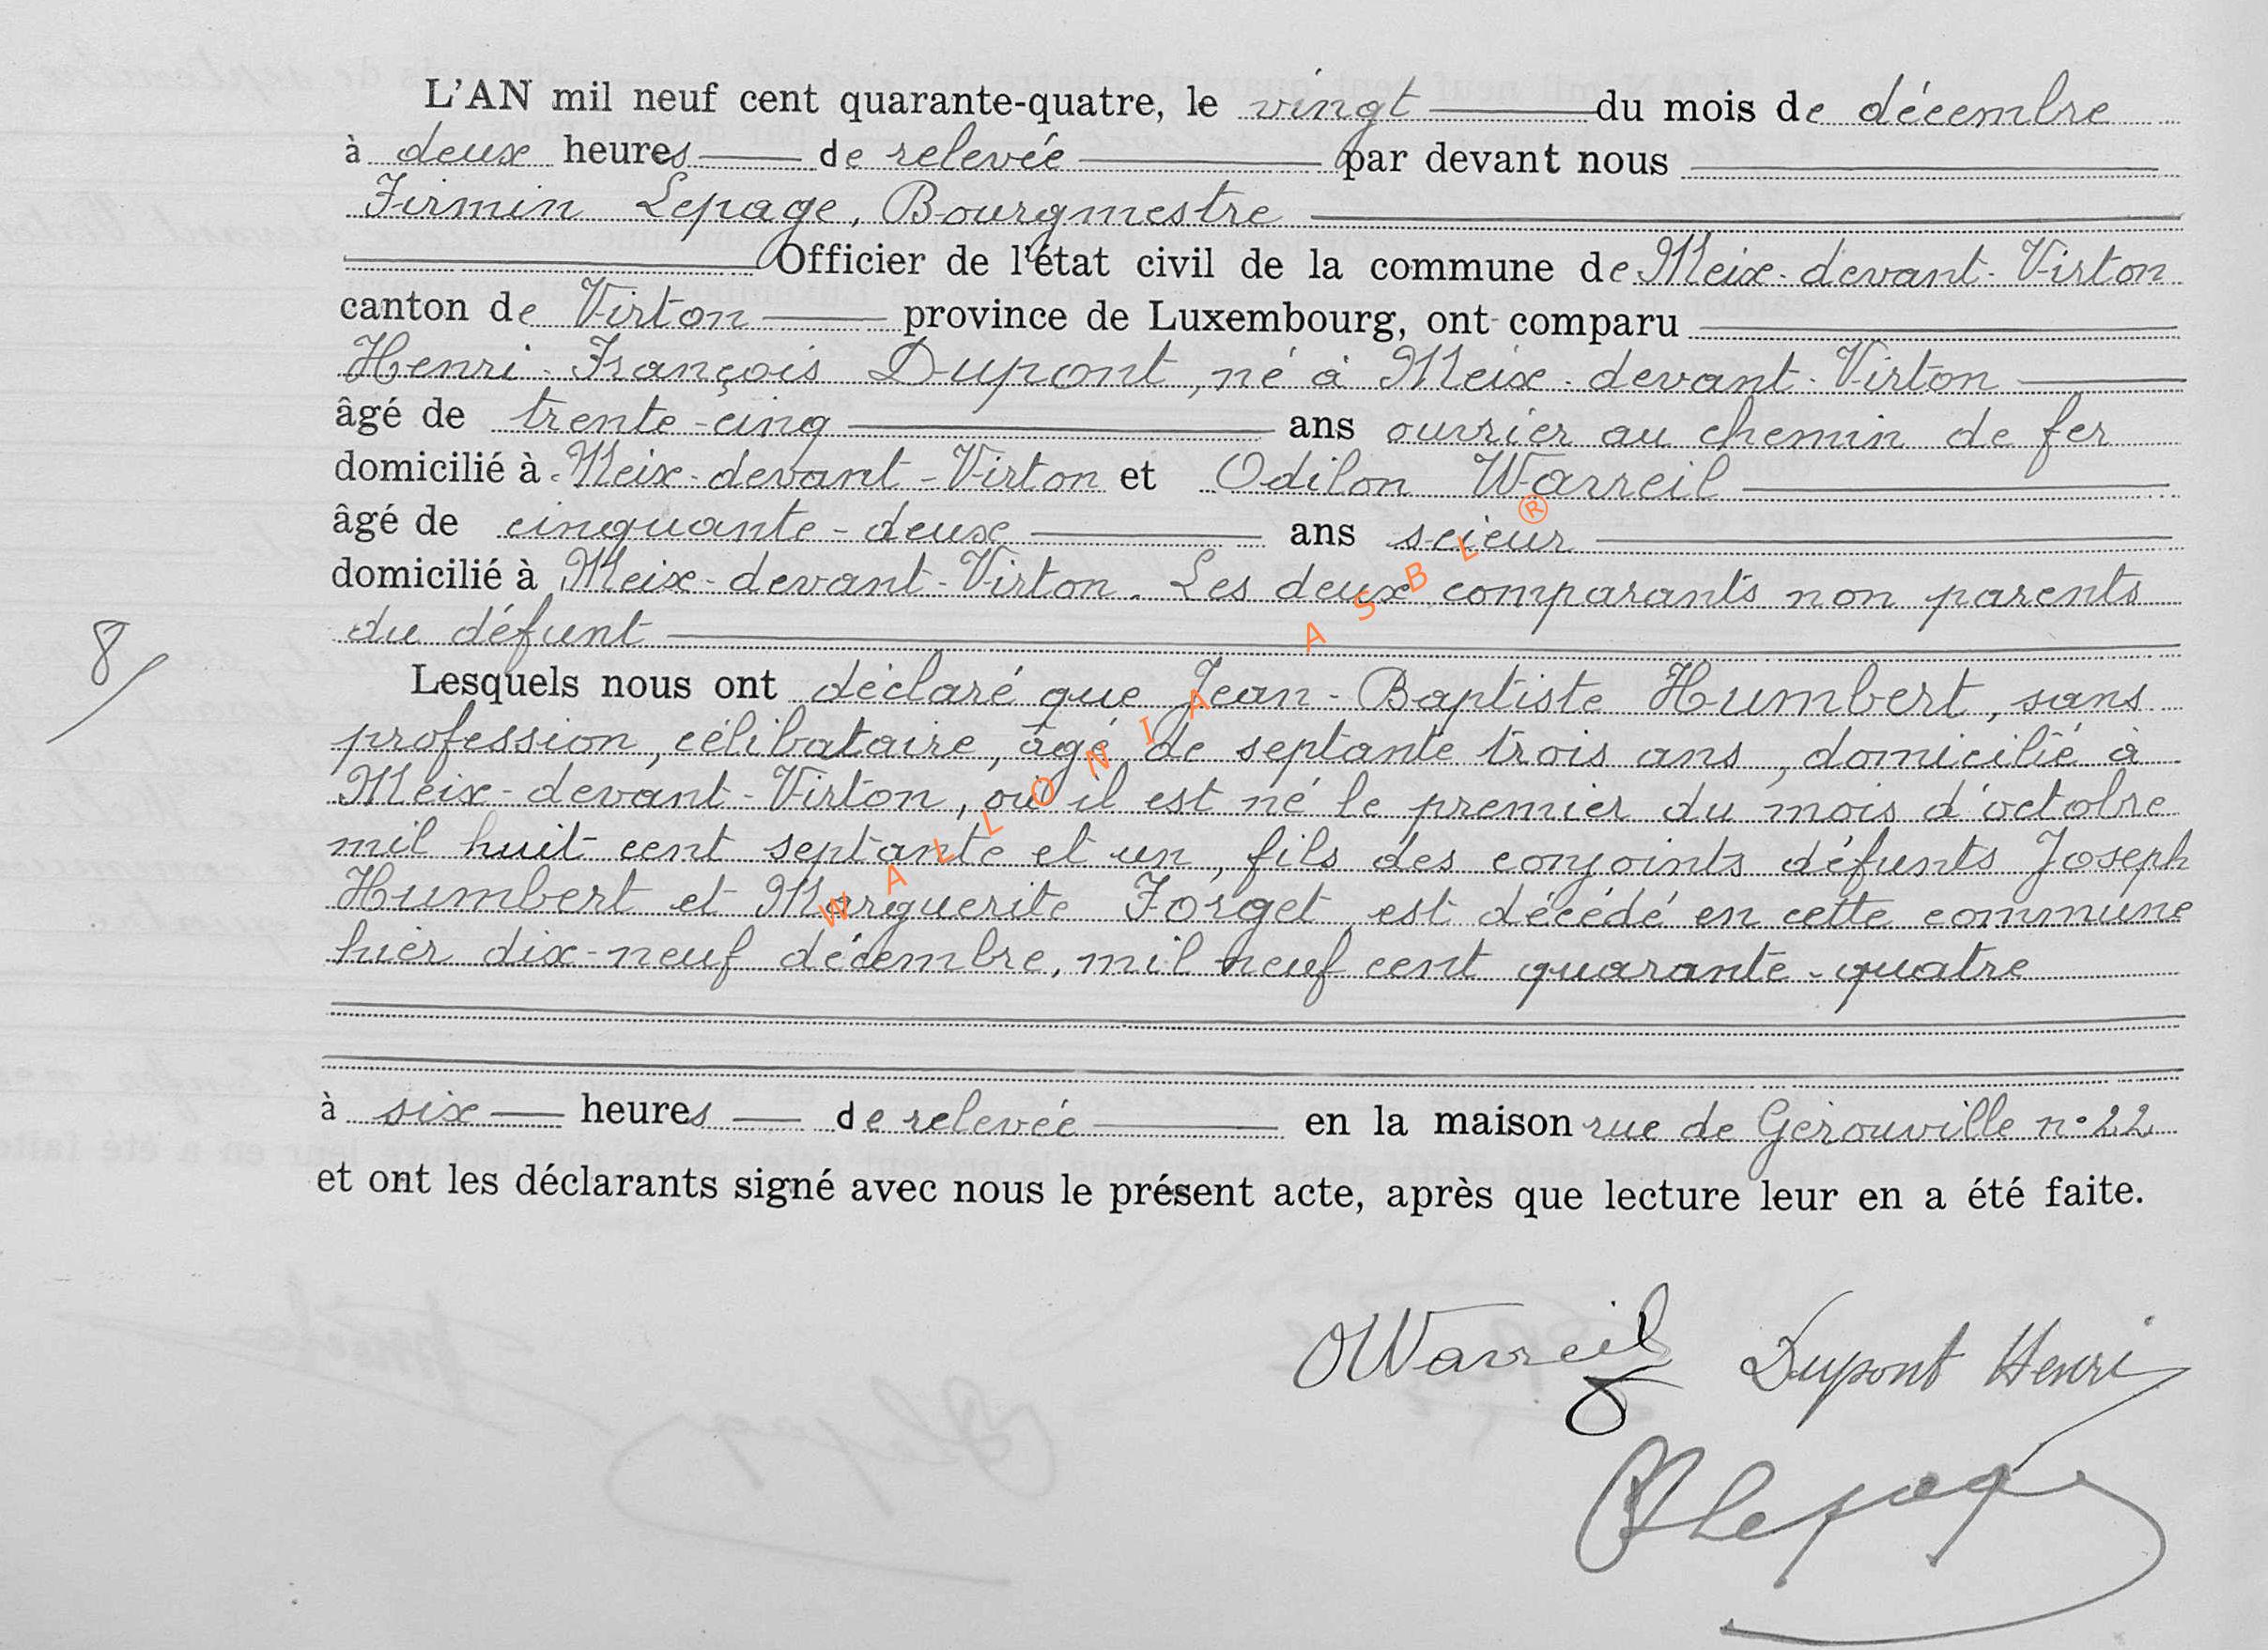 L'AN mil neuf cent quarante-quatre, le vingt du mois de décembre
à deux heures de relevée par devant nous
Firmin Lepage, Bourgmestre
Officier de l'état civil de la commune de Meix-devant-Virton
canton de Virton province de Luxembourg, ont comparu
Henri-François Dupont, né à Meix-devant-Virton
âgé de trente-cinq ans ouvrier au chemin de fer
domicilié à Meix-devant-Virton et Odilon Warreil
âgé de cinquante-deux ans scieur
domicilié à Meix-devant-Virton. Les deux comparants non parents
du défunt
8/
Lesquels nous ont déclaré que Jean-Baptiste Humbert, sans
profession, célibataire, âgé de septante trois ans, domicilié à
Meix-devant-Virton, où il est né le premier du mois d'octobre
mil huit cent septante et un, fils des conjoints défunts Joseph
Humbert et Marguerite Forget est décédé en cette commune
hier dix-neuf décembre, mil neuf cent quarante-quatre
à six heures de relevée en la maison rue de Gérouville n° 22
et ont les déclarants signé avec nous le présent acte, après que lecture leur en a été faite.
OWarreil Dupont Henri
Lepage
WALLONIA ASBL ®